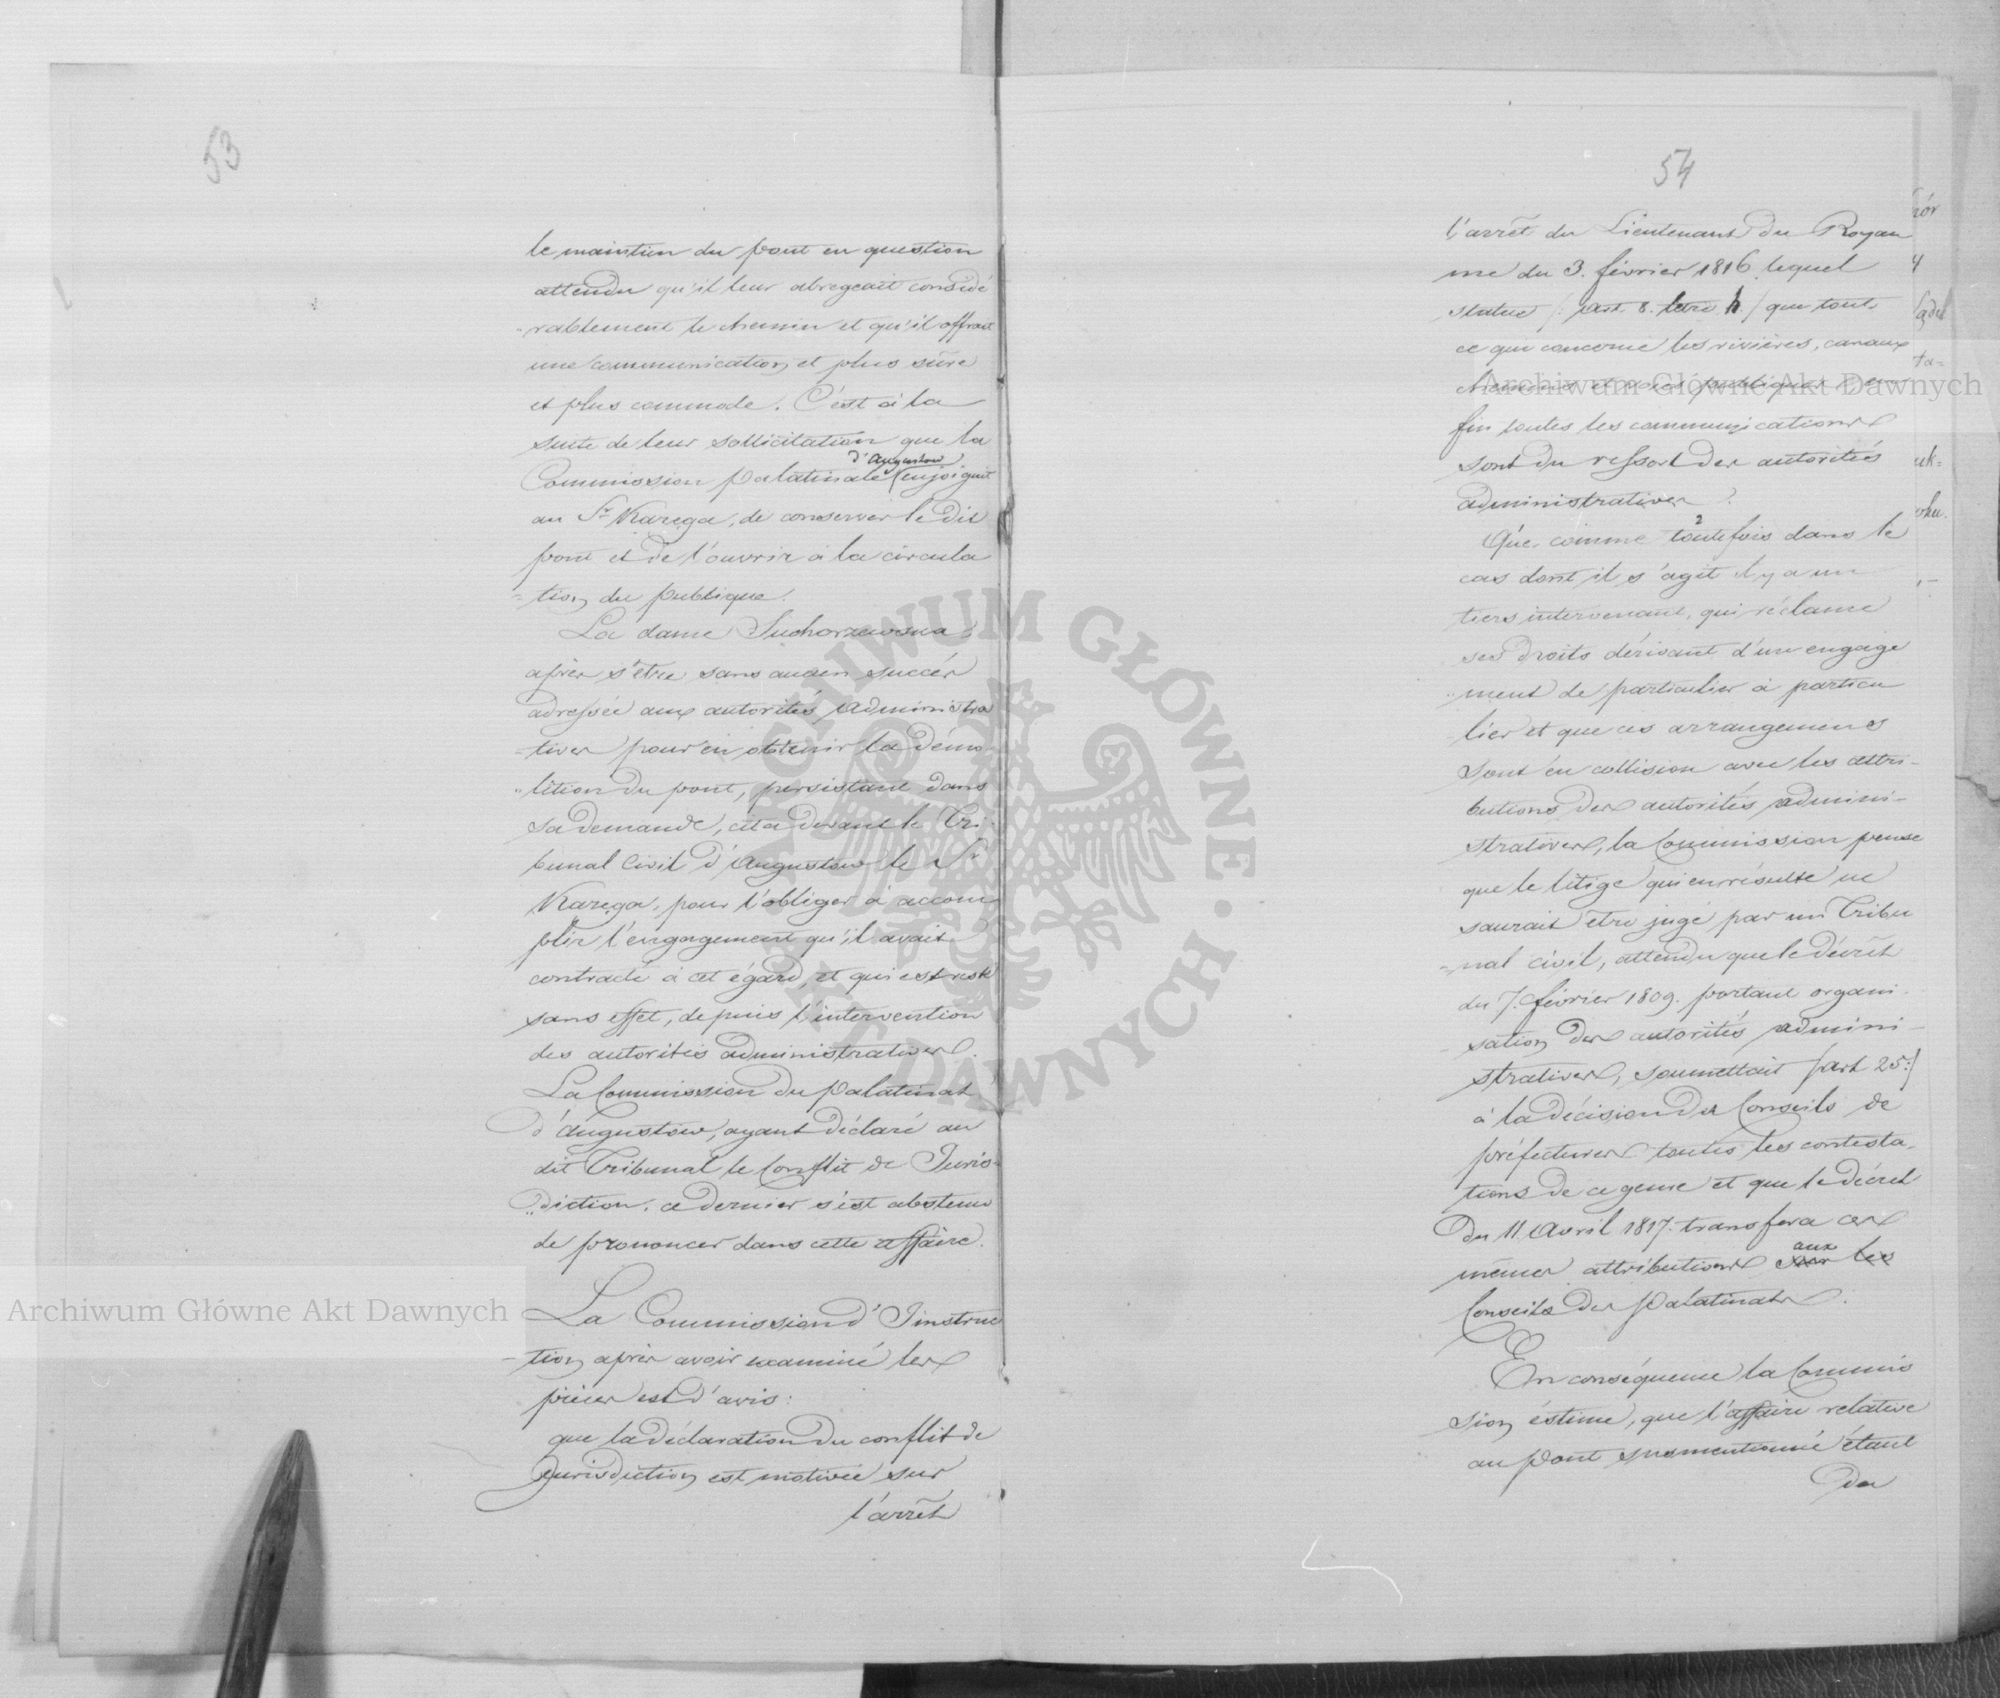 53
le maintien du pont en question
attendu qu'il leur abregeait considé
rablement le chemin et qu'il offrait
une communication et plus sûre
et plus commode. C'est à la
suite de leur sollicitation que la
d'Augustow
Commission palatinale enjoignit
au Sr Karęga, de conserver le dit
pont et de l'ouvrir à la circula
=tion du publique.
La dame Suchorzewska
après s'être sans aucun succès
adressée aux autorités administra
=tives pour en obtenir la démo
"lition du pont, persistant dans
sa demande, cita devant le Tri-
bunal Civil d'Augustow le Sr
Karęga, pour l'obliger à accom
plir l'engagement qu'il avait
contracté à cet égard, et qui est resté
sans effet, depuis l'intervention
des autorités administratives.
La Commission du Palatinat
d'Augustow, ayant déclaré au
dit Tribunal le Conflit de Juris-
"diction, ce dernier s'est abstenu
de prononcer dans cette affaire.
La Commission d'Instruc
-tion après avoir examiné les
pièces est d'avis:
que la déclaration du conflit de
Jurisdiction est motivée sur
l'arrêt
54
l'arrêt du Lieutenant du Royau
me du 3. février 1816. lequel
statue /: art. 8. letre h./ que tout
ce qui concerne les rivières, canaux
chemins et voies publiques en
fin toutes les communications
sont du ressort des autorités
administratives.
2
Que comme toutefois dans le
cas dont il s'agit il y a un
tiers intervenant, qui réclame
ses droits dérivant d'un engage
"ment de particulier à particu
-lier et que ces arrangemens
sont en collision avec les attri-
butions des autorités admini-
stratives, la Commission pense
que le litige qui en résulte ne
saurait être jugé par un Tribu
=nal civil, attendu que le décrêt
du 7. février 1809. portant organi-
sation des autorités admini-
stratives, soumettait /art 25:/
à la décision des Conseils de
préfectures toutes les contesta-
tions de ce genre et que le décret
du 11 Avril 1817. transfera ces
aux
mêmes attributions sur les
Conseils des Palatinats.
En conséquence la Commis
sion éstime, que l'affaire relative
au Pont susmentionné étant
du
Archiwum Główne Akt Dawnych
Archiwum Główne Akt Dawnych
ARCHIWUM GŁÓWNE • AKT DAWNYCH •